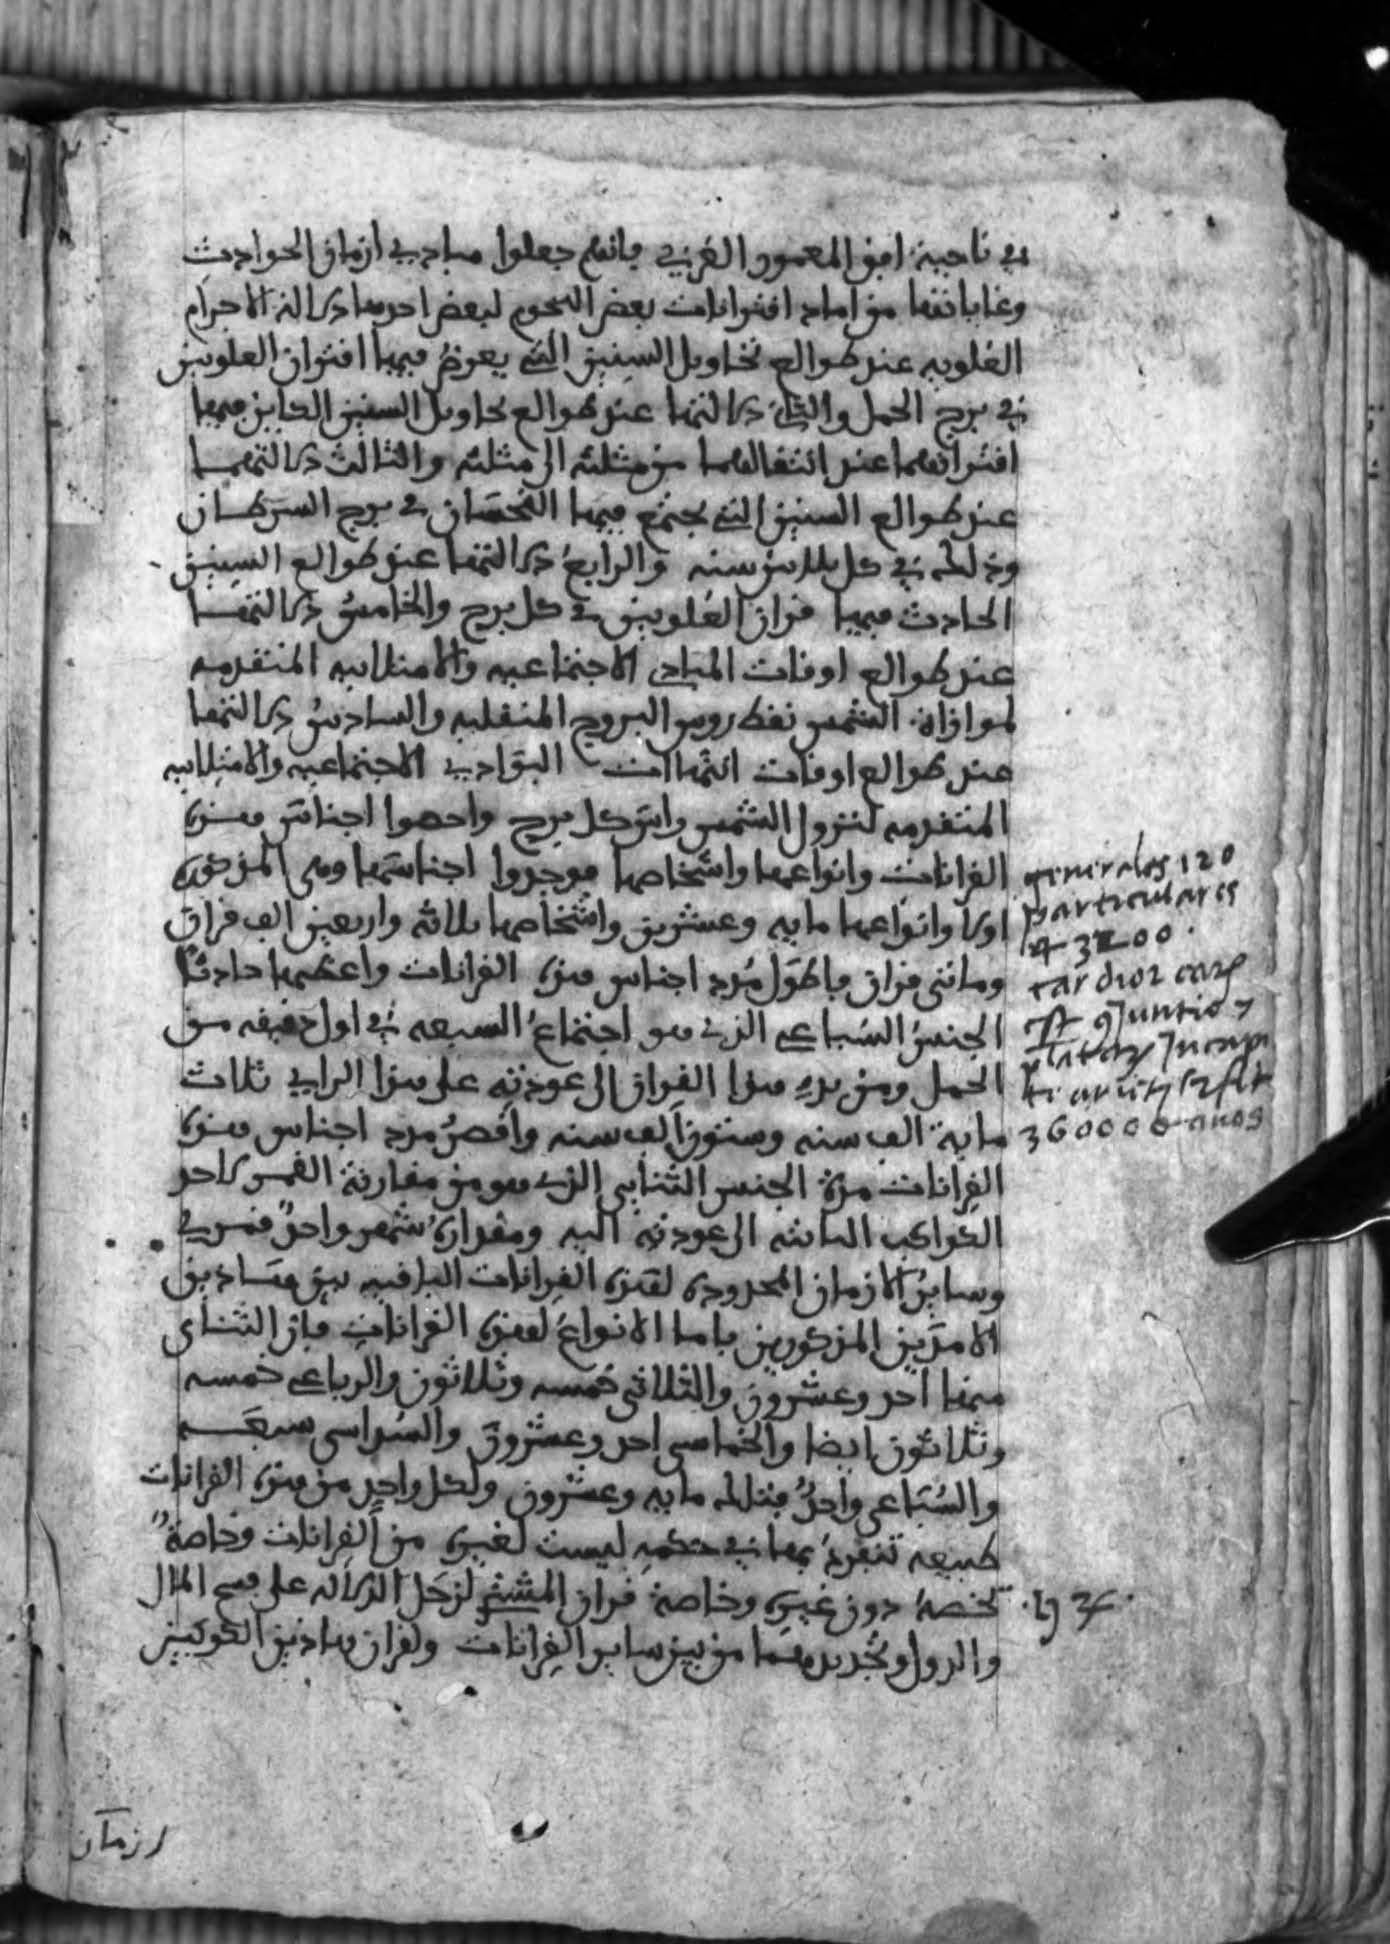 في ناحية افق المعمور الغربي فانهم جعلوا مبادي ازمان الحوادث
وغاياتها من امداد اقترانات بعض النجوم لبعض احدها دلالة الاجرام
العلويه عند طوالع تحاويل السنين التي يعرض فيها اقتران العلويين
في برج الحمل والثاني دلالتها عند طوالع تحاويل السنين الكاين فيها
اقترانهما عند انتقالهما من مثلثه الى مثلثه والثالث دلالتهما
عند طوالع السنين التي يجتمع فيها النحسان في برج السرطان
وذلك في كل ثلاثين سنه والرابع دلالتها عند طوالع السنين
الحادث فيها قران العلويين في كل برج والخامس دلالتها
عند طوالع اوقات المبادي الاجتماعيه والامتلائيه المتقدمه
لموافاة الشمس نقط رووس البروج المنقلبه والسادس دلالتها
عند طوالع اوقات البوادي الاجتماعيه والامتلائيه
المتقدمه لنزول الشمس راس كل برج واحصوا اجناس هذه
القرانات وانواعها واشخاصها فوجدوا اجناسها وهي المذكوره
اولا وانواعها مايه وعشرين واشخاصها ثلاثه واربعين الف قران
ومائتي قران فاطول مدد اجناس هذه القرانات واعظمها حادثا
الجنس السباعي الذي هو اجتماع السبعه في اول دقيقه من
الحمل ومن بدء هذا القران الى عودته على هذا الراي ثلاث
مايه الف سنه وستون الف سنه واقصر مدد اجناس هذه
القرانات مدة الجنس الثنائي الذي هو من مقارنة القمر لاحد
الكواكب الى عودته اليه ومقداره شهر واحد قمري
وساير الازمان المحدوده لهذه القرانات الباقيه بين هاذين
الامدين المذكورين فاما الانواع لهذه القرانات فان الثنائي
منها احد وعشرون والثلاثي خمسه وثلاثون والرباعي خمسه
وثلاثون ايضا والخماسي احد وعشرون والسداسي سبعه
والسباعي واحد فتلك مايه وعشرون ولكل واحد من هذه القرانات
طبيعه تنفرد بها في حكمه ليست لغيره من القرانات وخاصة
تخصه دون غيره وخاصة قران المشتري لزحل الدلاله على فسح المال
والدول وتجديدهما من بين ساير القرانات ولقران هاذين الكوكبين
generales 120
particulares
43200
est conjunctio 7
planetarum in capi
te arietis
360000 anos
♄ ♃
ازمان